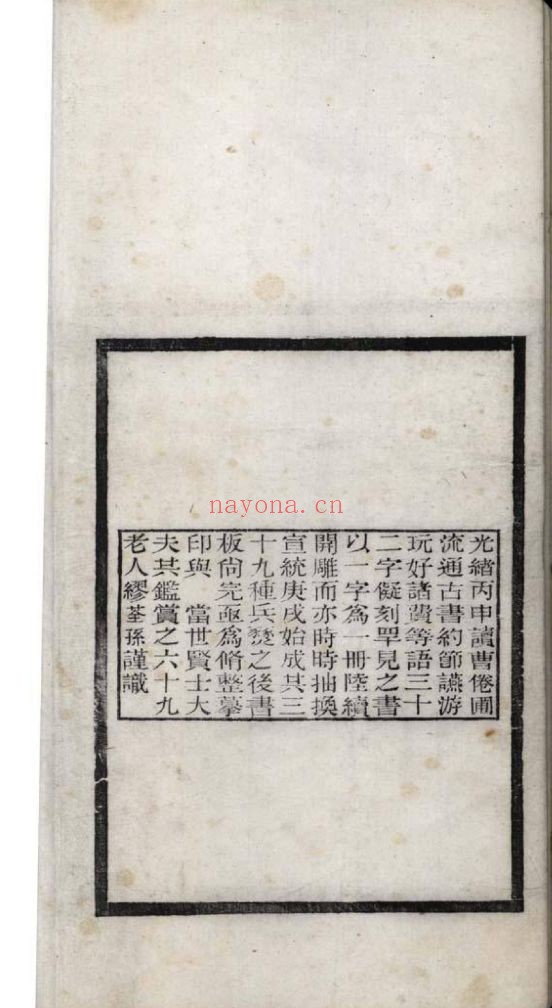 光緒丙申讀曹倦圃
流通古書約節讌游
玩好諸費等語三十
二字儗刻罕見之書
以一字為一冊陸續
開雕而亦時時抽換
宣統庚戌始成其三
十九種兵燹之後書
板尙完亟為脩整摹
印與 當世賢士大
夫共鑑賞之六十九
老人繆荃孫謹識
nayona.cn